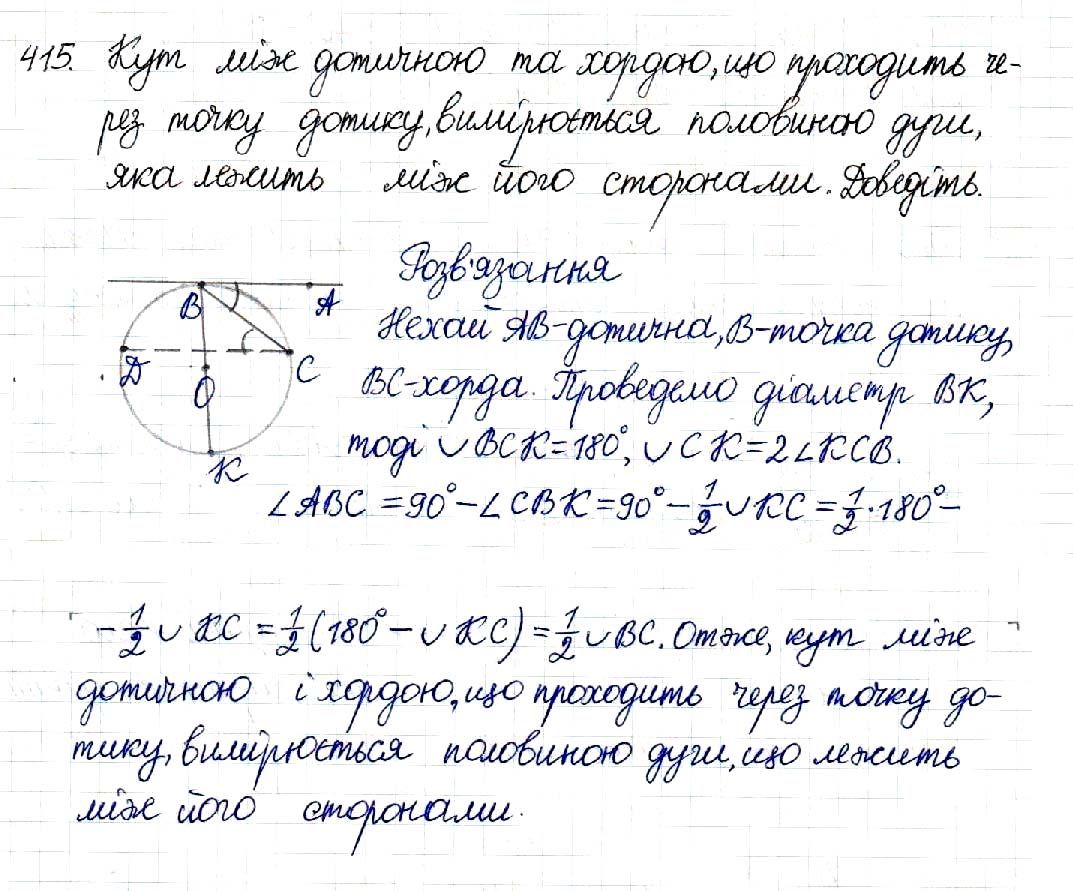 415. Кут між дотичною та хордою, що проходить че-
рез точку дотику, вимірюється половиною дуги,
яка лежить між його сторонами. Доведіть.
Розв'язання
B
A
Нехай AB-дотична, B-точка дотику,
D
C
O
BC-хорда. Проведемо діаметр BK,
тоді ∪BCK=180°, ∪CK=2∠KCB.
K
∠ABC = 90° - ∠CBK = 90° - 1/2 ∪KC = 1/2 · 180° -
- 1/2 ∪ KC = 1/2 (180° - ∪ KC) = 1/2 ∪ BC. Отже, кут між
дотичною і хордою, що проходить через точку до-
тику, вимірюється половиною дуги, що лежить
між його сторонами.